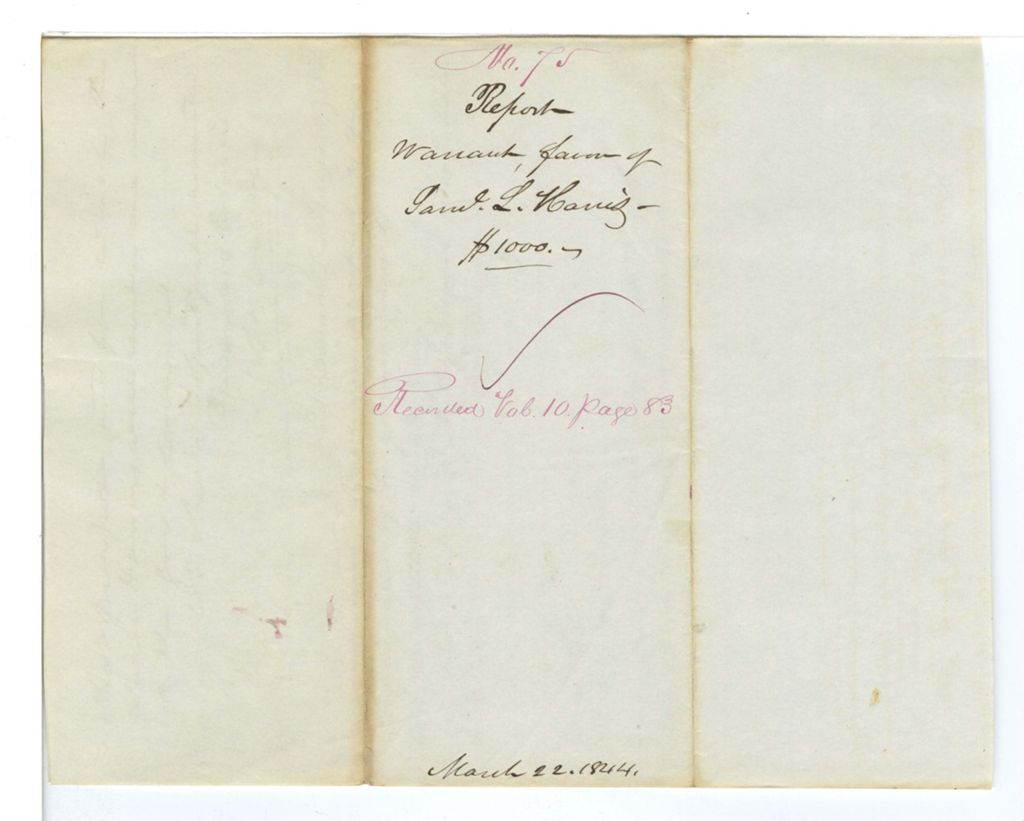 No. 75
Report
Warrant, favor of
Saml. L. Harris
$1000.
Recorded Vol. 10. page 83
March 22. 1844.